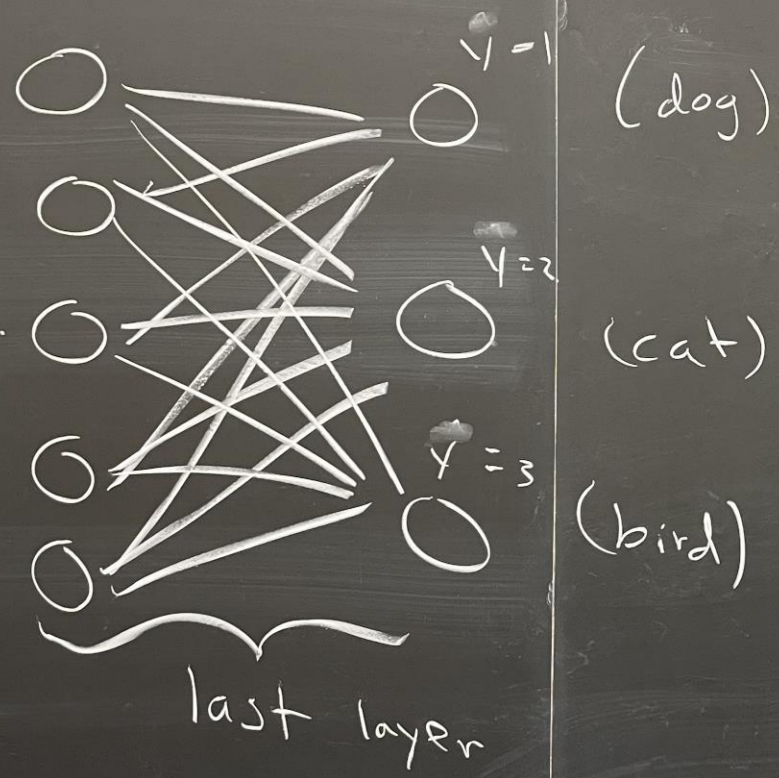 y = 1 (dog)
y = 2 (cat)
y = 3 (bird)
last layer